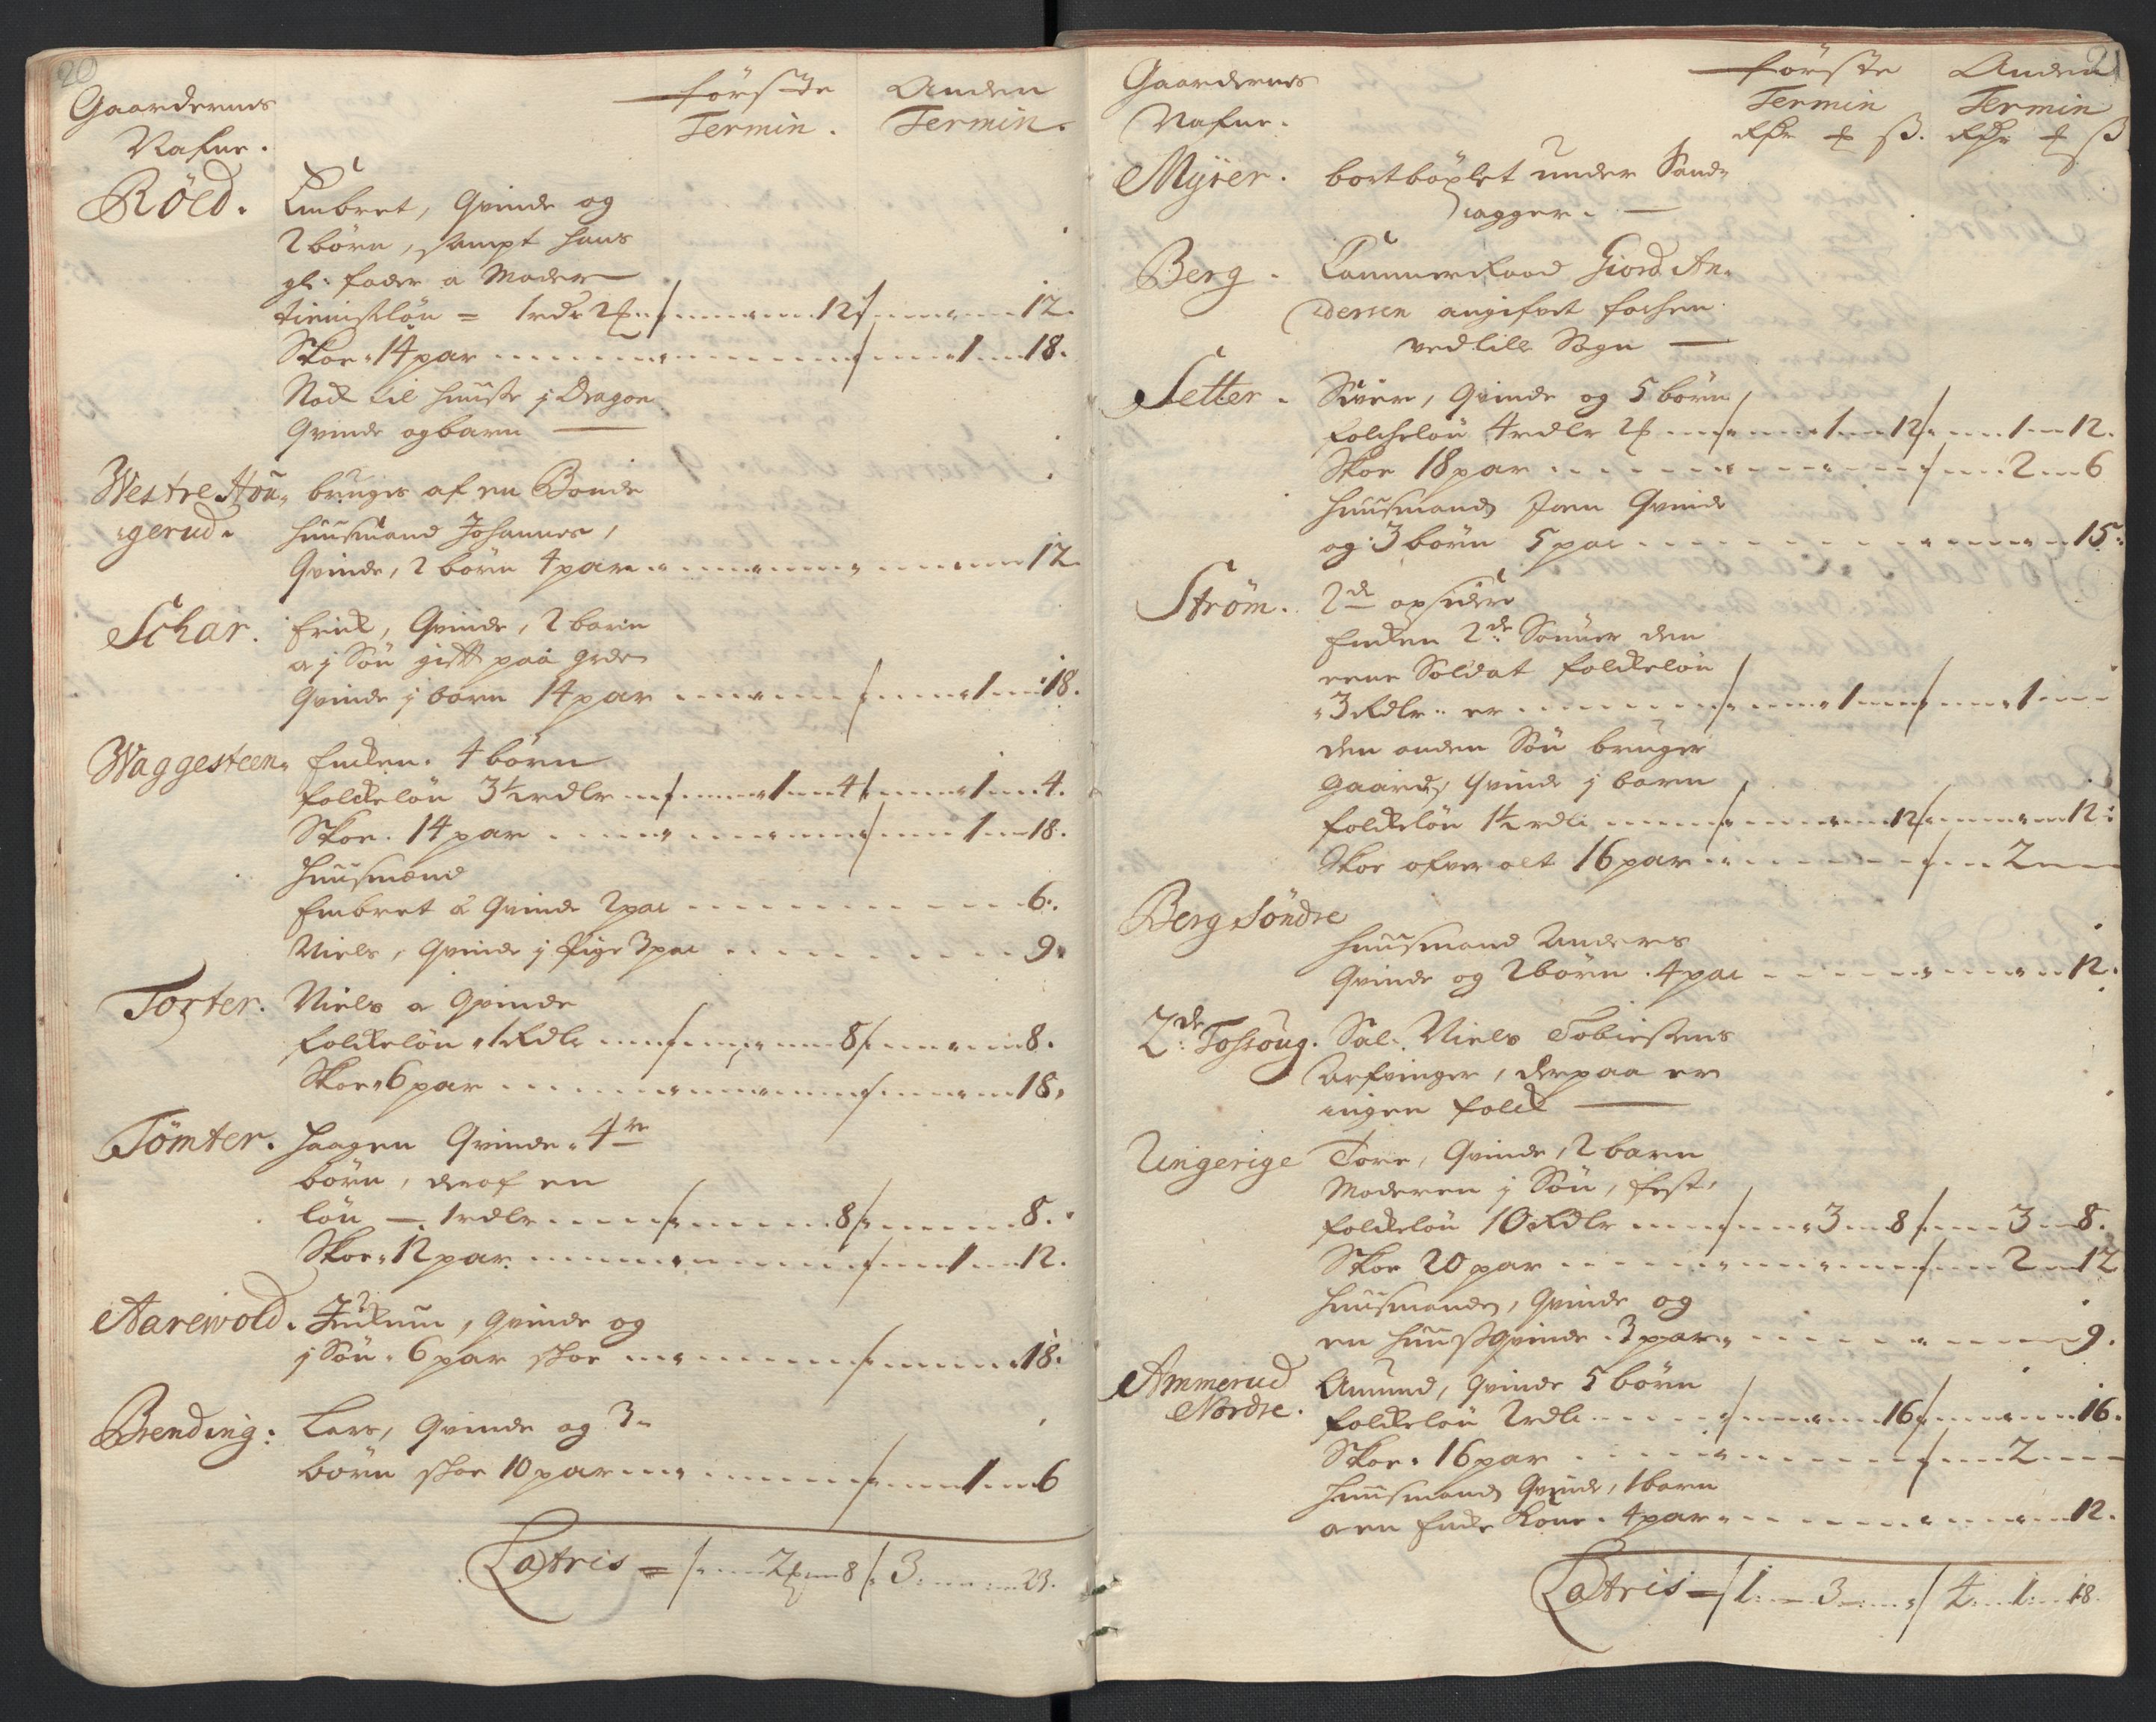 20
Gaardernes
Nafne.
første Termin.
Anden Termin.
Röed. Embret, Qvinde og
2 børn, sampt hans
gl: fader a Moder
tienistløn = 1 rdr 2 ... 12 ... 12.
Skoe 14 par ... 1 ... 18.
Nok til huuse j Dragon
Qvinde og barn —
Westre Hou- bruges af en Bonde
gerud. huusmand Johannes,
Qvinde, 2 børn 4 par ... 12.
Schar. Erick, Qvinde, 2 barn
a j Søn gift paa grden
Qvinde j børn 14 par ... 1 ... 18.
Waggesteen. Encken. 4 børn
folckeløn 3½ rdlr ... 1 ... 4 ... 1 ... 4.
Skoe. 14 par ... 1 ... 18.
Huusmænd
Embret a Qvinde 2 par ... 6.
Niels, Qvinde j Pige 3 par ... 9.
Torter. Niels a Qvinde
folckeløn 1 Rdlr ... 8 ... 8.
Skoe 6 par ... 18.
Tömter. Haagen Qvinde. 4re
børn, deraf en
løn — 1 rdlr ... 8 ... 8.
Skoe 12 par ... 1 ... 12.
Aarewold. Qvinde og
j Søn. 6 par skoe ... 18.
Brending: Lars, Qvinde og 3
børn skoe 10 par ... 1 ... 6
Latris = 2 ... 8 3 ... 23.
21
Gaardernes
Nafne.
første Termin
Anden Termin
Rdr ß. Rdr ß
Myrer. bortbøxlet under Sand-
agger. —
Berg. Cammerraad Giord An-
dersen angifvet
ved lille Sogn —
Setter. Siver, Qvinde og 5 børn
Folcheløn 4 rdlr ... 1 ... 12 ... 1 ... 12.
Skoe 18 par ... 2 ... 6
Huusmand Joen Qvinde
og 3 børn 5 par ... 15.
Ström. 2de opsidere
Encken 2de Sønner den
eene Soldat folckeløn
3 Rdlr er ... 1 ... 1
den anden Søn bruger
Gaard, Qvinde j barn
folckeløn 1½ rdlr ... 12 ... 12:
Skoe ofver alt 16 par ... 2
Berg Söndre
Huusmand Anders
Qvinde og 2 børn. 4 par ... 12.
2de Tossoug. Sal. Niels Tobiesens
Arfvinger, derpaa er
ingen folck —
Ungerige Tore, Qvinde, 2 barn
Moderen j Søn,
folckeløn 10 Rdlr ... 3 ... 8 ... 3 ... 8.
Skoe 20 par ... 2 ... 12
Huusmand, Qvinde og
en huusqvinde. 3 par ... 9.
Ammerud Amund, Qvinde 5 børn
Nordre. folckeløn 2 rdlr ... 16 ... 16.
Skoe. 16 par ... 2
Huusmand Qvinde, 1 barn
a en Encke Kone. 4 par ... 12.
Latris = 1. 3 4. 1. 18.